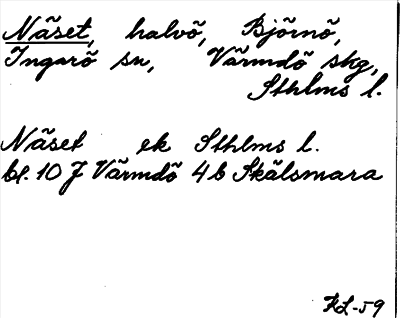 Näset, halvö, Björnö,
Ingarö sn, Värmdö skg,
Sthlms l.
Näset ek Sthlms l.
bl. 10 J Värmdö 4b Skälsmara
KL-59